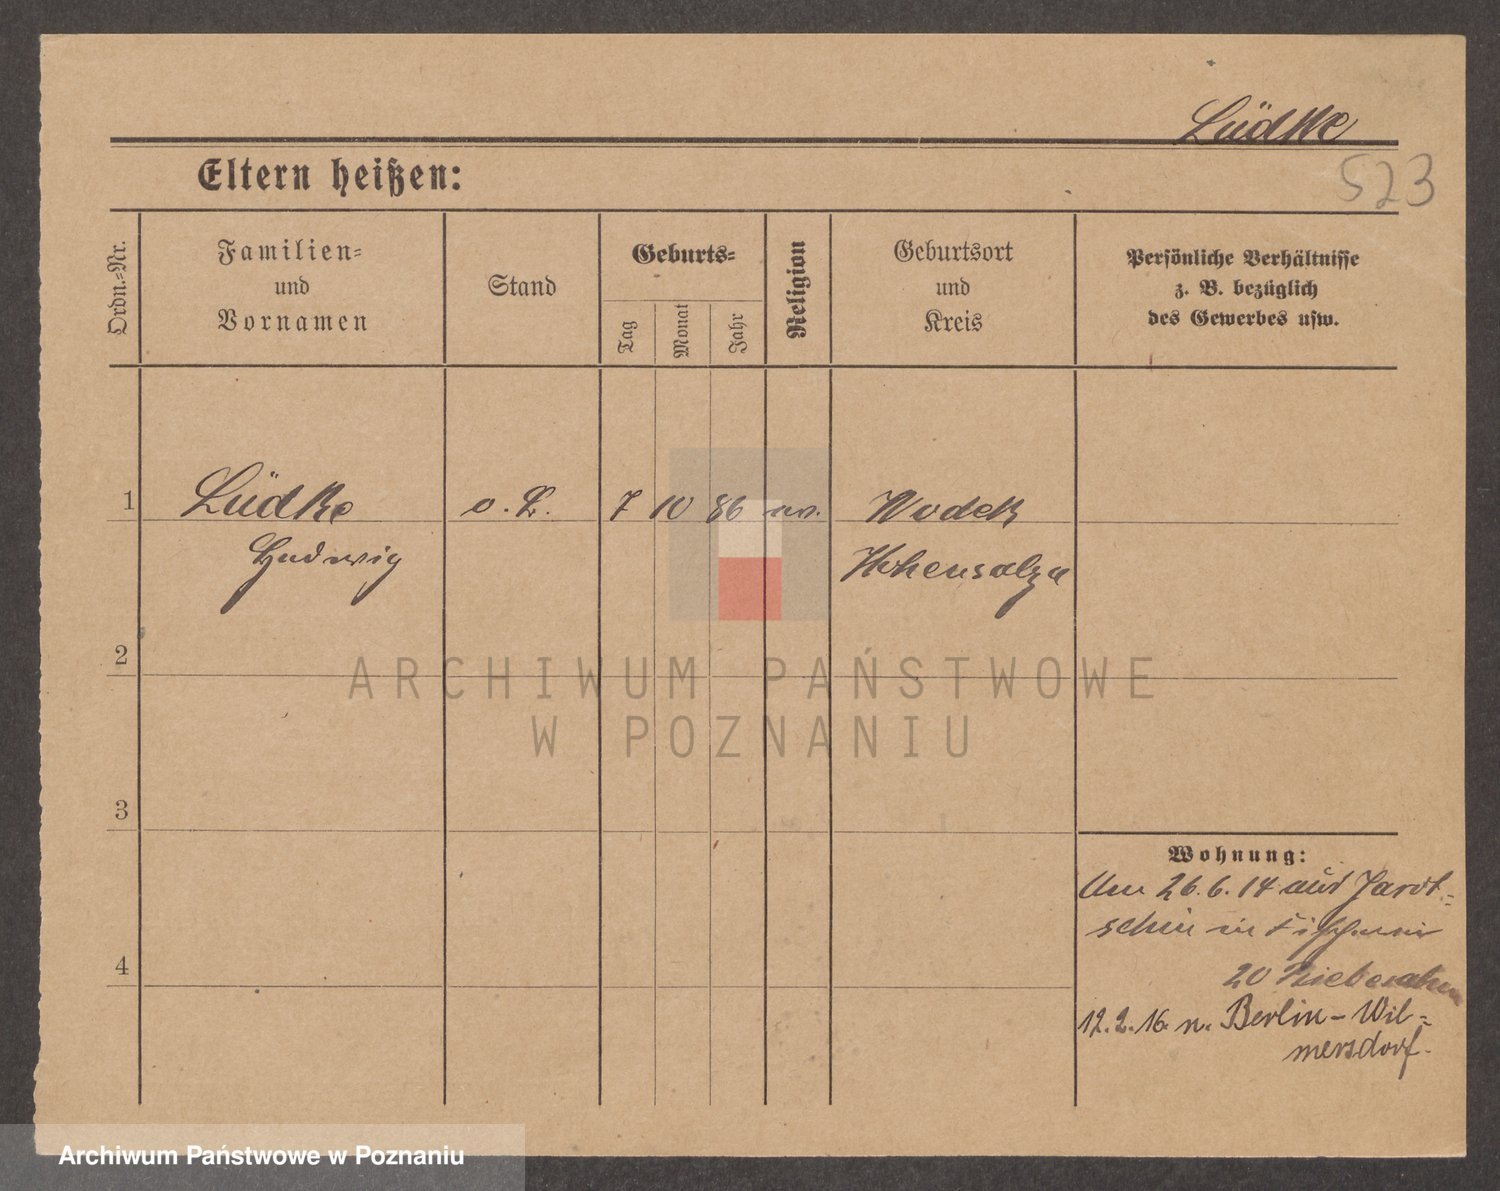 Lüdke
523
Eltern heißen:
Ordn.-Nr.
Familien-
und
Vornamen
Stand
Geburts-
Tag
Monat
Jahr
Religion
Geburtsort
und
Kreis
Persönliche Verhältnisse
z. B. bezüglich
des Gewerbes usw.
1 Lüdke o. L. 7 10 86 ev. Wodek
Ludwig Hohensalza
2
3
4
Wohnung:
Am 26.6.14 aus Jarot-
schin in
20
12.2.16. n. Berlin-Wil-
mersdorf.
ARCHIWUM PAŃSTWOWE
W POZNANIU
Archiwum Państwowe w Poznaniu